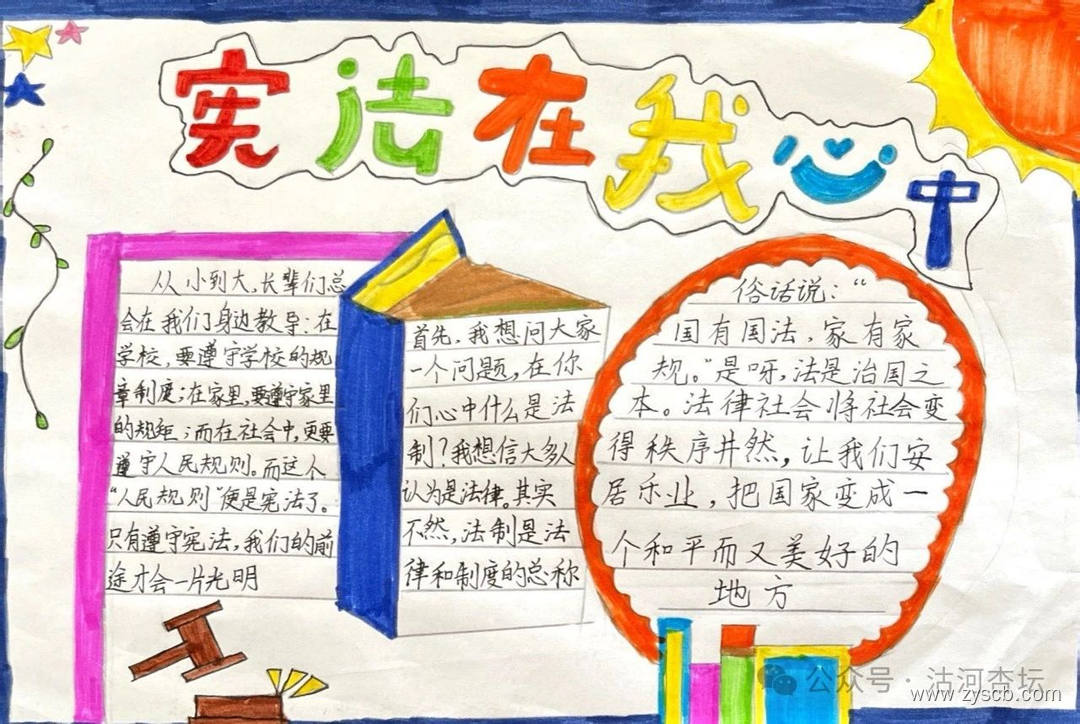 宪法在我心中
从小到大,长辈们总
会在我们身边教导:在
学校,要遵守学校的规
章制度;在家里,要遵守家里
的规矩;而在社会中,更要
遵守人民规则。而这个
“人民规则”便是宪法了。
只有遵守宪法,我们的前
途才会一片光明
首先,我想问大家
一个问题,在你
们心中什么是法
制?我想信大多人
认为是法律。其实
不然,法制是法
律和制度的总称
俗话说:“
国有国法,家有家
规。”是呀,法是治国之
本。法律社会将社会变
得秩序井然,让我们安
居乐业,把国家变成一
个和平而又美好的
地方
公众号·沽河杏坛
www.zyscb.com